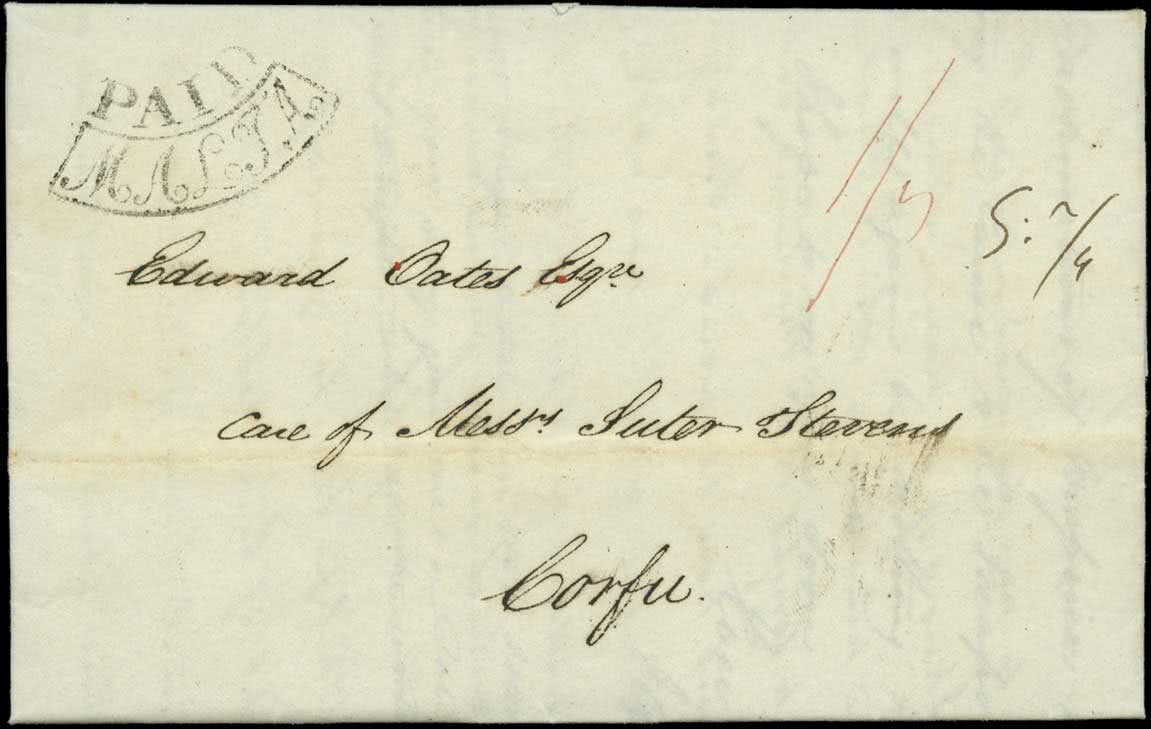 PAID
MALTA
1/5
Edward Oates Esqre
Care of Messrs Suter Stevens
Corfu.